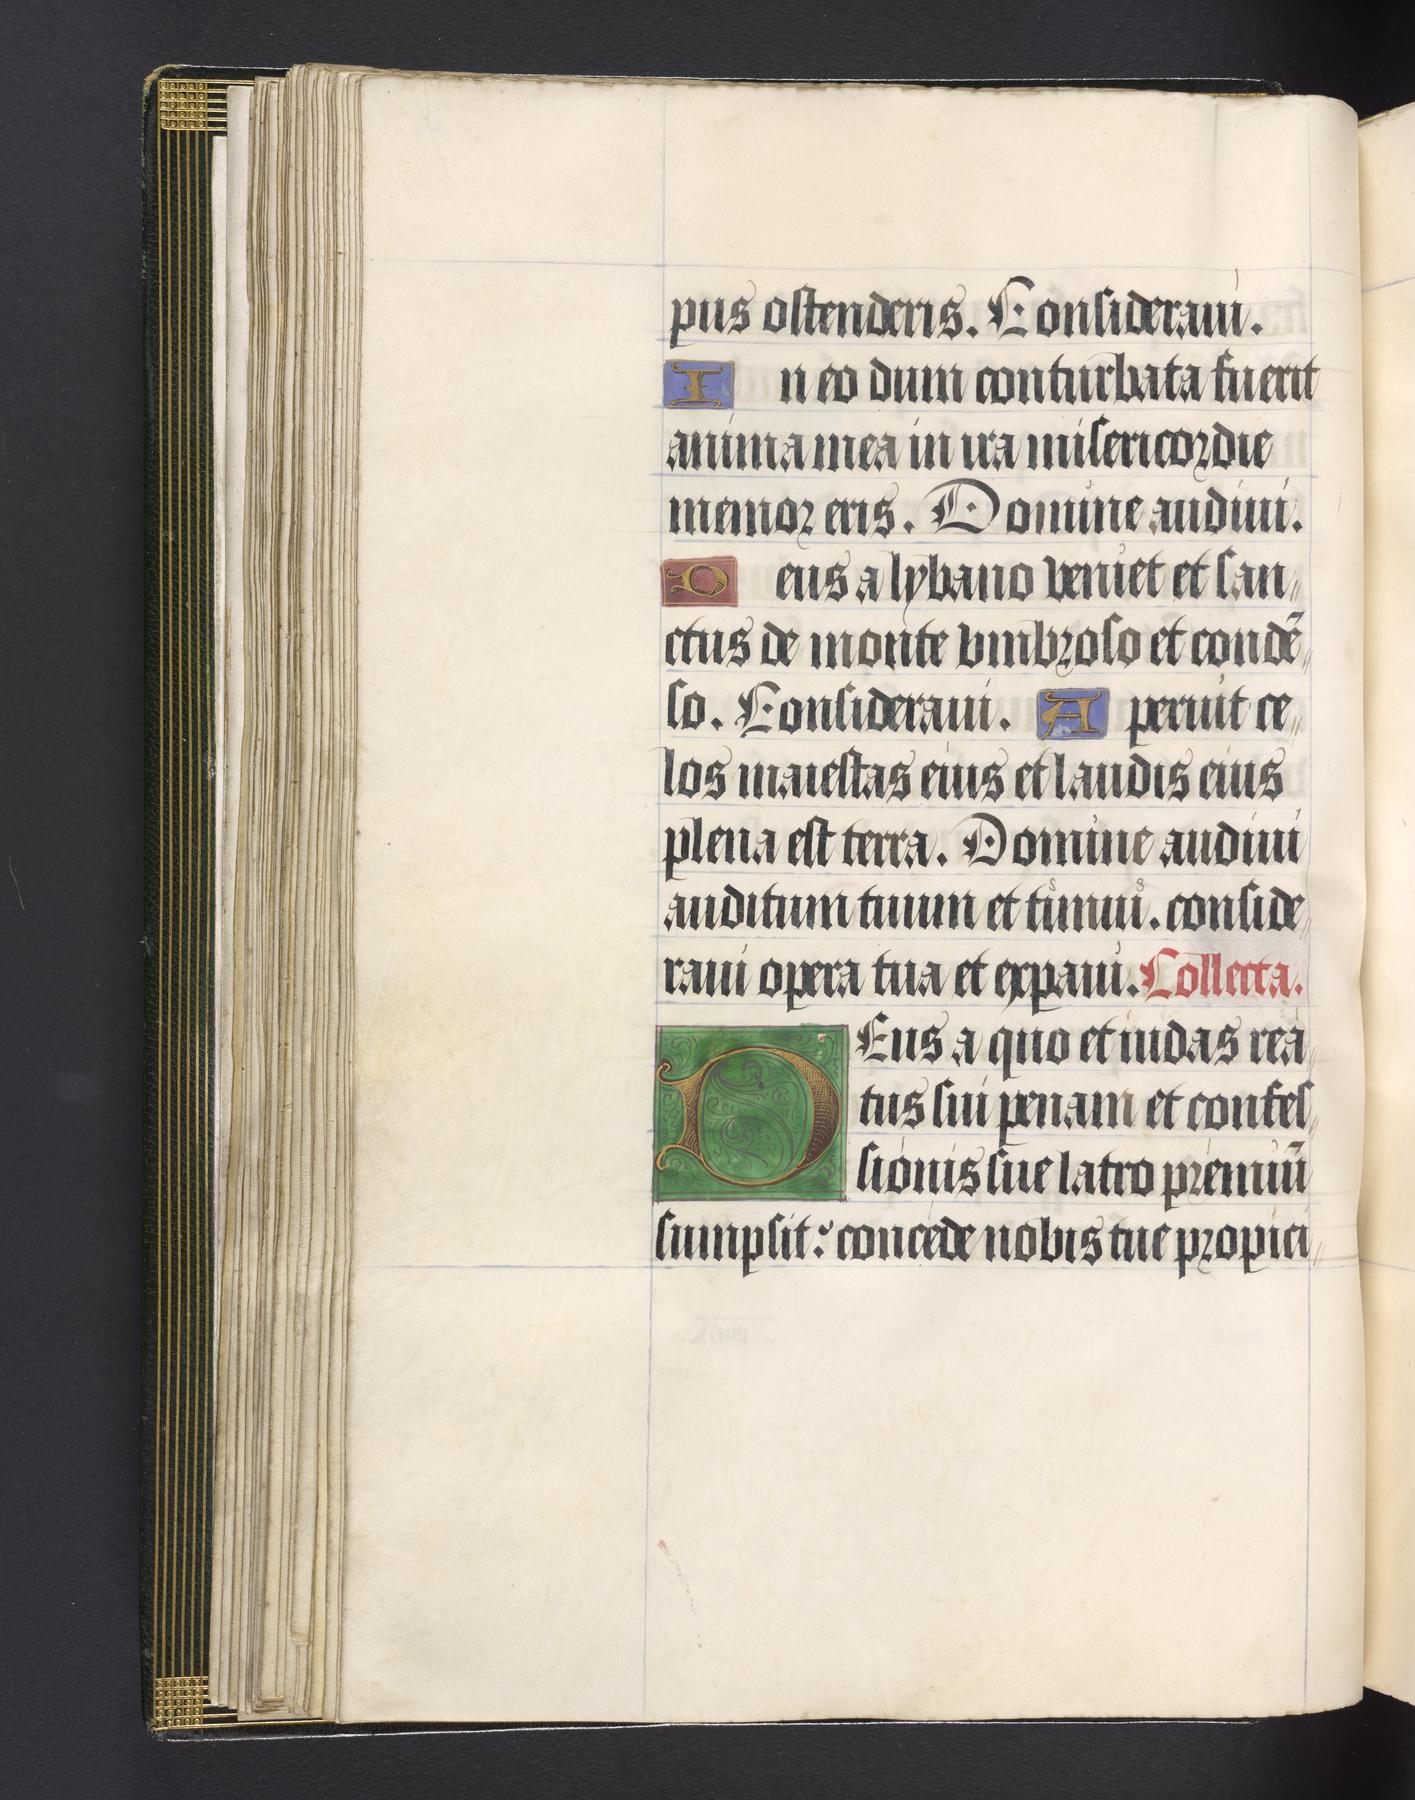 pus ostenderis. Consideraui.
In eo dum conturbata fuerit
anima mea in ira misericordie
memor eris. Domine audiui.
Deus a lybano veniet et san//
ctus de monte vmbroso et condē//
so. Consideraui. Aperuit ce//
los maiestas eius et laudis eius
plena est terra. Domine audiui
auditum tuum et timui. conside//
raui opera tua et expaui. Collecta.
DEus a quo et iudas rea//
tus sui penam et confes//
sionis sue latro premiū
sumpsit: concede nobis tue propici//